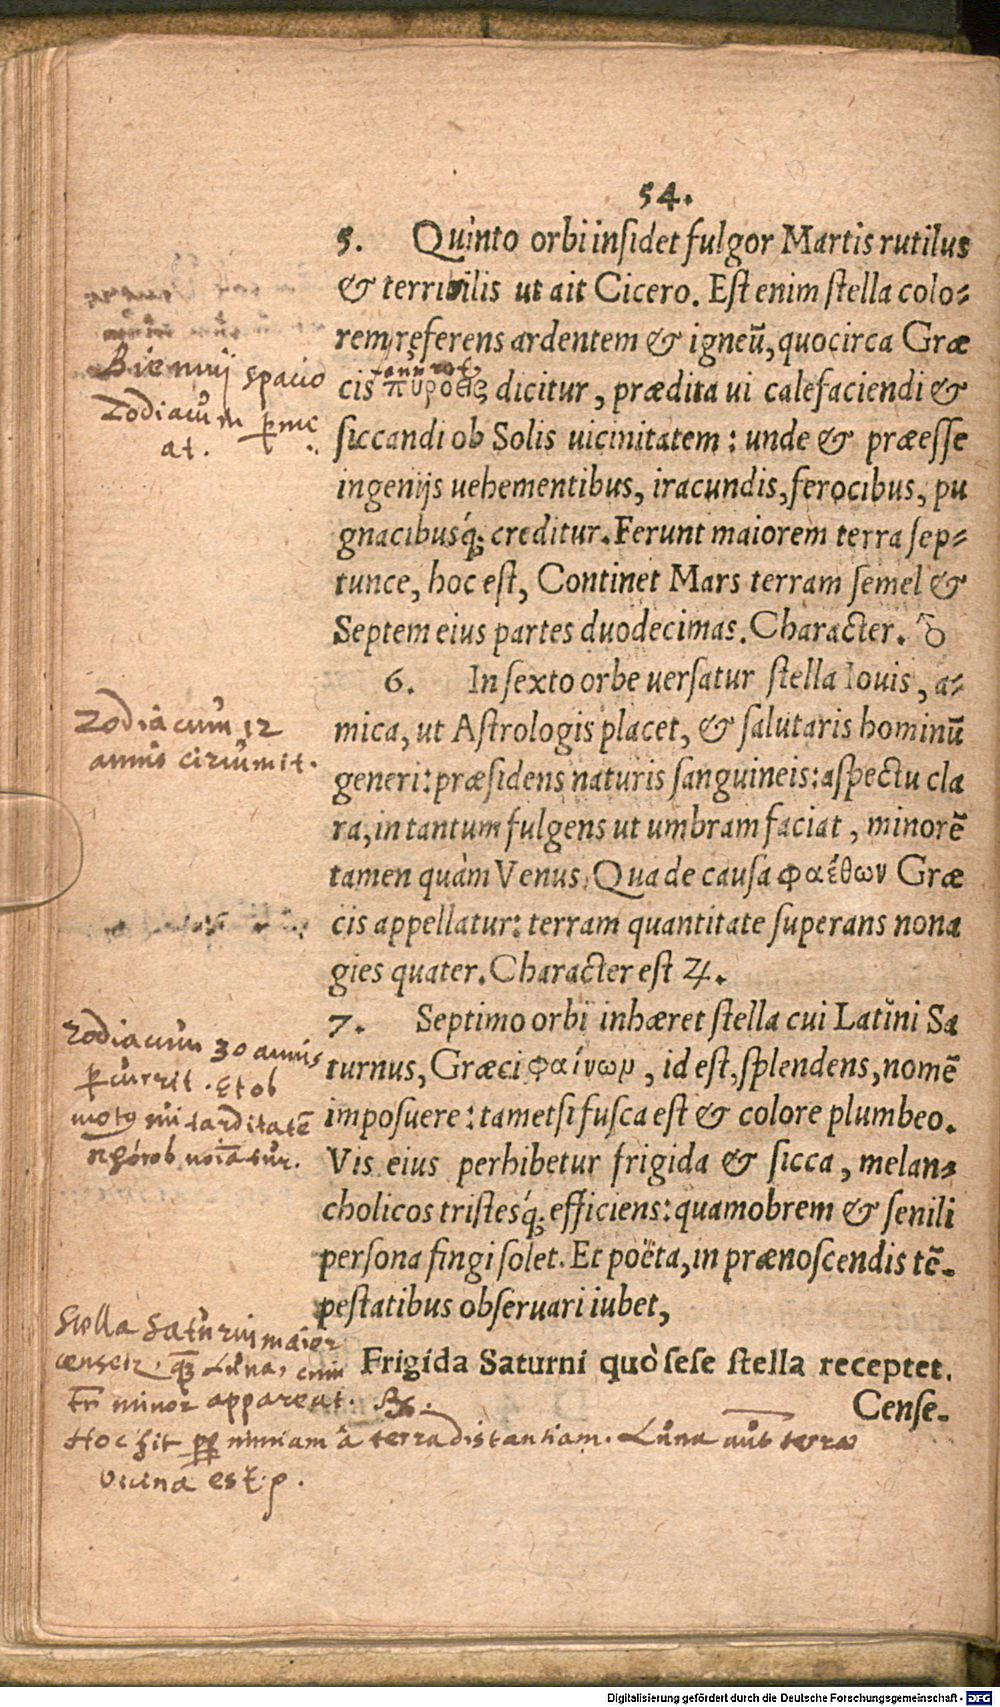 54.
5. Quinto orbi insidet fulgor Martis rutilus
& terribilis ut ait Cicero. Est enim stella colo-
rem referens ardentem & igneũ, quocirca Græ
cis πυρόεις dicitur, prædita ui calefaciendi &
siccandi ob Solis uicinitatem : unde & præesse
ingenijs uehementibus, iracundis, ferocibus, pu
gnacibusq́; creditur. Ferunt maiorem terra sep-
tunce, hoc est, Continet Mars terram semel &
Septem eius partes duodecimas. Character. ♂
Biennij spacio
Zodiacum
at.
6. In sexto orbe uersatur stella Iouis, a-
mica, ut Astrologis placet, & salutaris hominũ
generi: præsidens naturis sanguineis: aspectu cla
ra, in tantum fulgens ut umbram faciat, minorẽ
tamen quàm Venus. Qua de causa φαέθων Græ
cis appellatur: terram quantitate superans nona
gies quater. Character est ♃.
Zodiacum 12
annis
7. Septimo orbi inhæret stella cui Latini Sa
turnus, Græci φαίνωρ, id est, splendens, nomẽ
imposuere: tametsi fusca est & colore plumbeo.
Vis eius perhibetur frigida & sicca, melan-
cholicos tristesq́; efficiens: quamobrem & senili
persona fingi solet. Et poëta, in prænoscendis tẽ-
pestatibus obseruari iubet,
Zodiacum 30 annis
currit. Et ob
tarditatẽ
Frigida Saturni quò sese stella receptet.
Cense-
Stella Saturni maior
Luna, cum
minor appareat.
Hoc fit nimiam à terra distantiam. Luna terræ
vicina est.
Digitalisierung gefördert durch die Deutsche Forschungsgemeinschaft - DFG